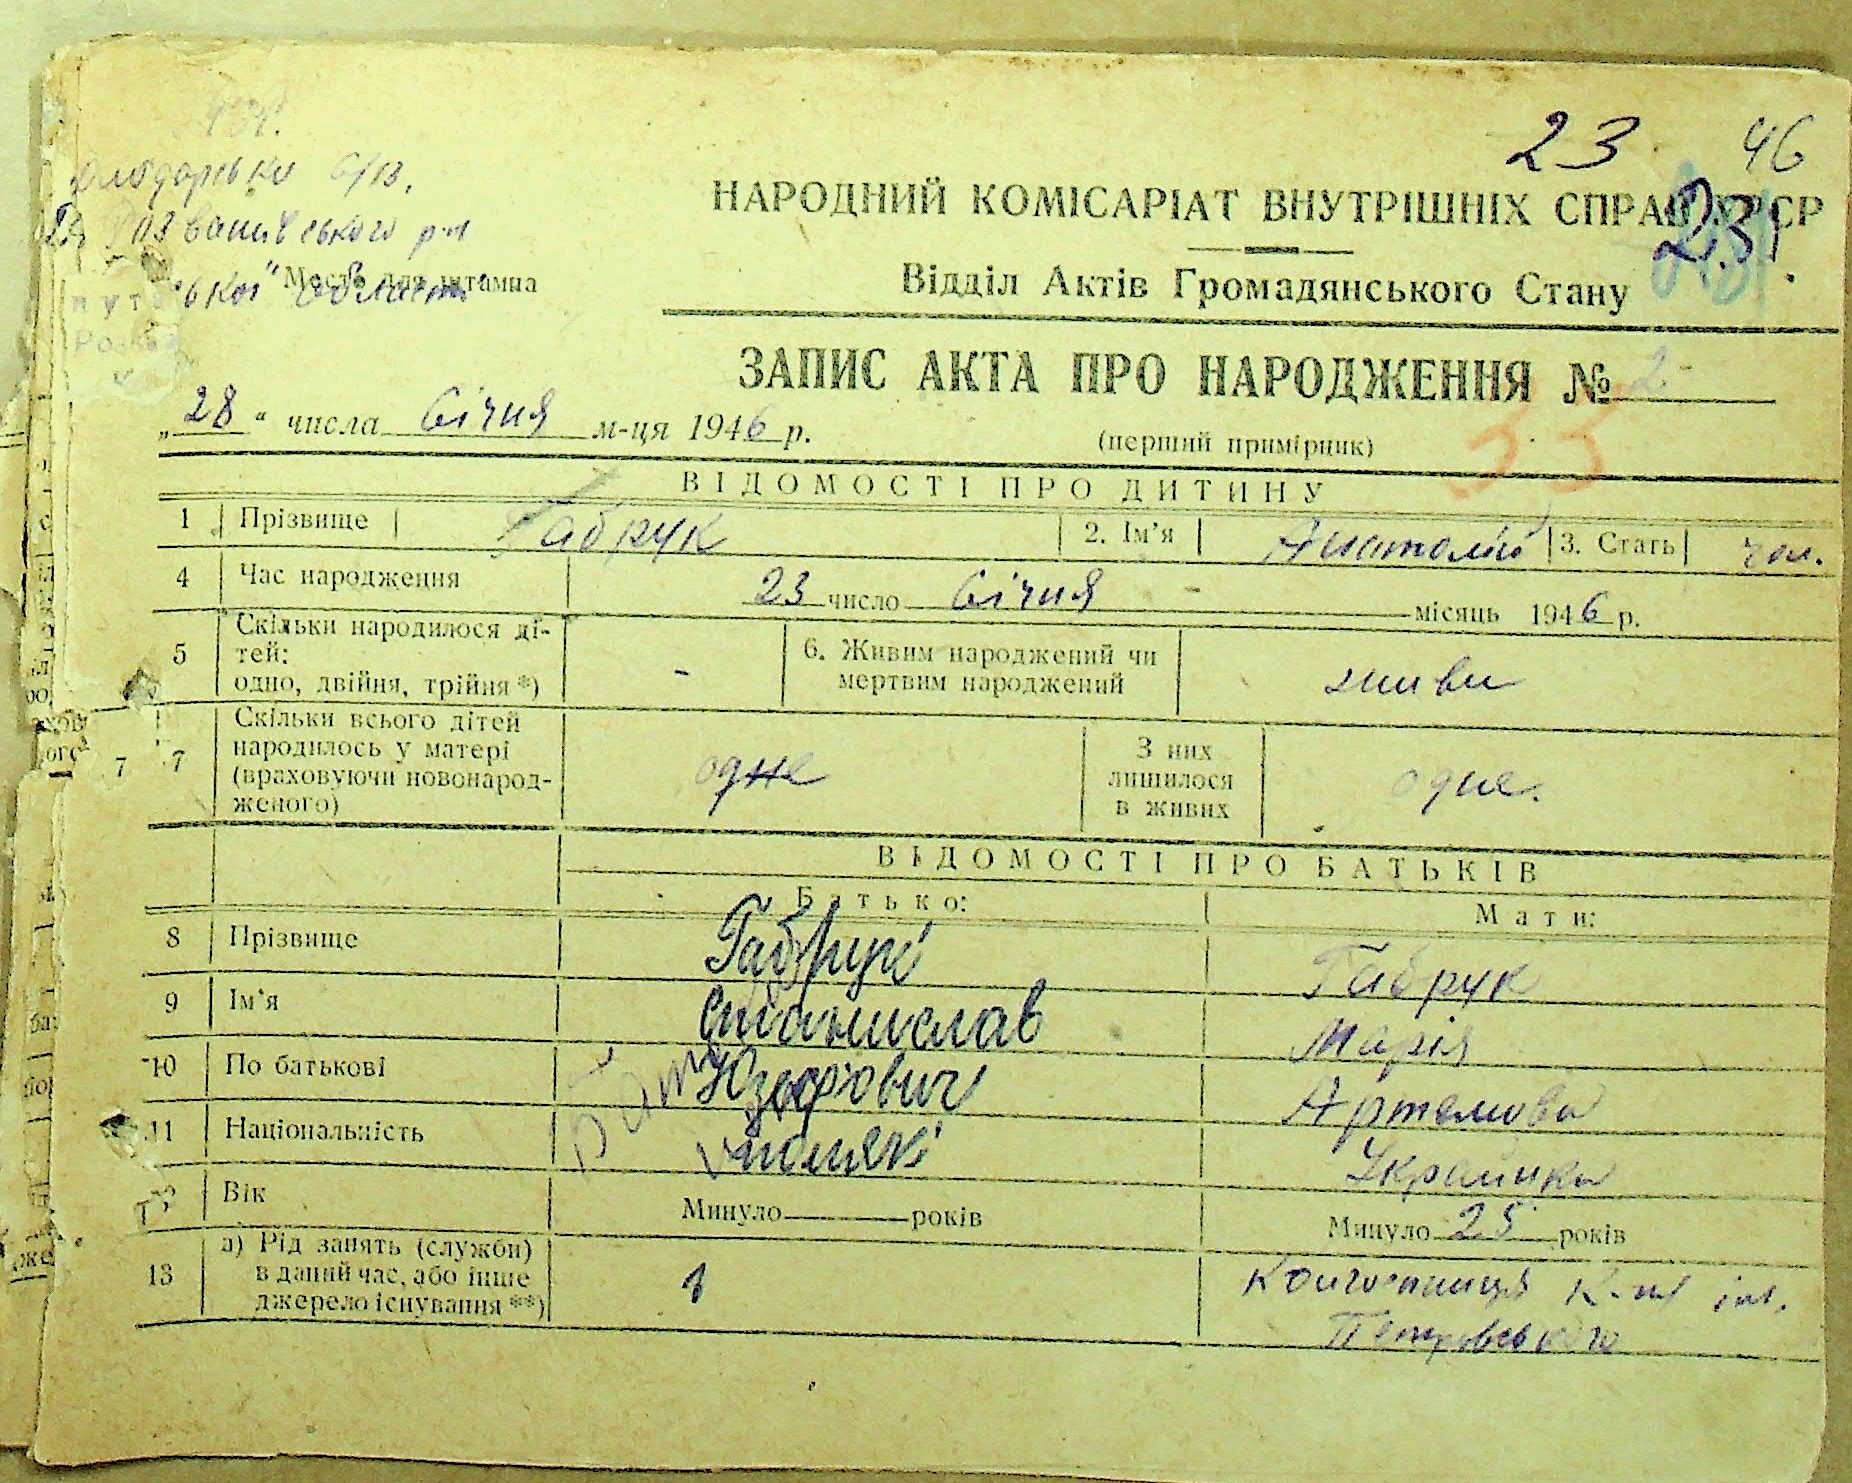 23 46
НАРОДНИЙ КОМІСАРІАТ ВНУТРІШНІХ СПРАВ УРСР
23.
Відділ Актів Громадянського Стану
р-н
Місце для штампа
області
ЗАПИС АКТА ПРО НАРОДЖЕННЯ № 2
„28“ числа Січня м-ця 1946 р.
(перший примірник)
ВІДОМОСТІ ПРО ДИТИНУ
1 Прізвище Габрук 2. Ім'я Анатолій 3. Стать чол.
4 Час народження 23 число Січня місяць 1946 р.
5 Скільки народилося ді-
тей:
одно, двійня, трійня *) - 6. Живим народжений чи
мертвим народжений живи
7 7 Скільки всього дітей
народилось у матері
(враховуючи новонарод-
женого) одне З них
лишилося
в живих одне.
ВІДОМОСТІ ПРО БАТЬКІВ
Батько: Мати:
8 Прізвище Габрук Габрук
9 Ім'я Станислав Марія
10 По батькові Юзефович Артемова
11 Національність поляк Українка
Вік Минуло рокiв Минуло 25 років
13 а) Рід занять (служби)
в даний час, або інше
джерело існування **) К-п ім.
Петровського